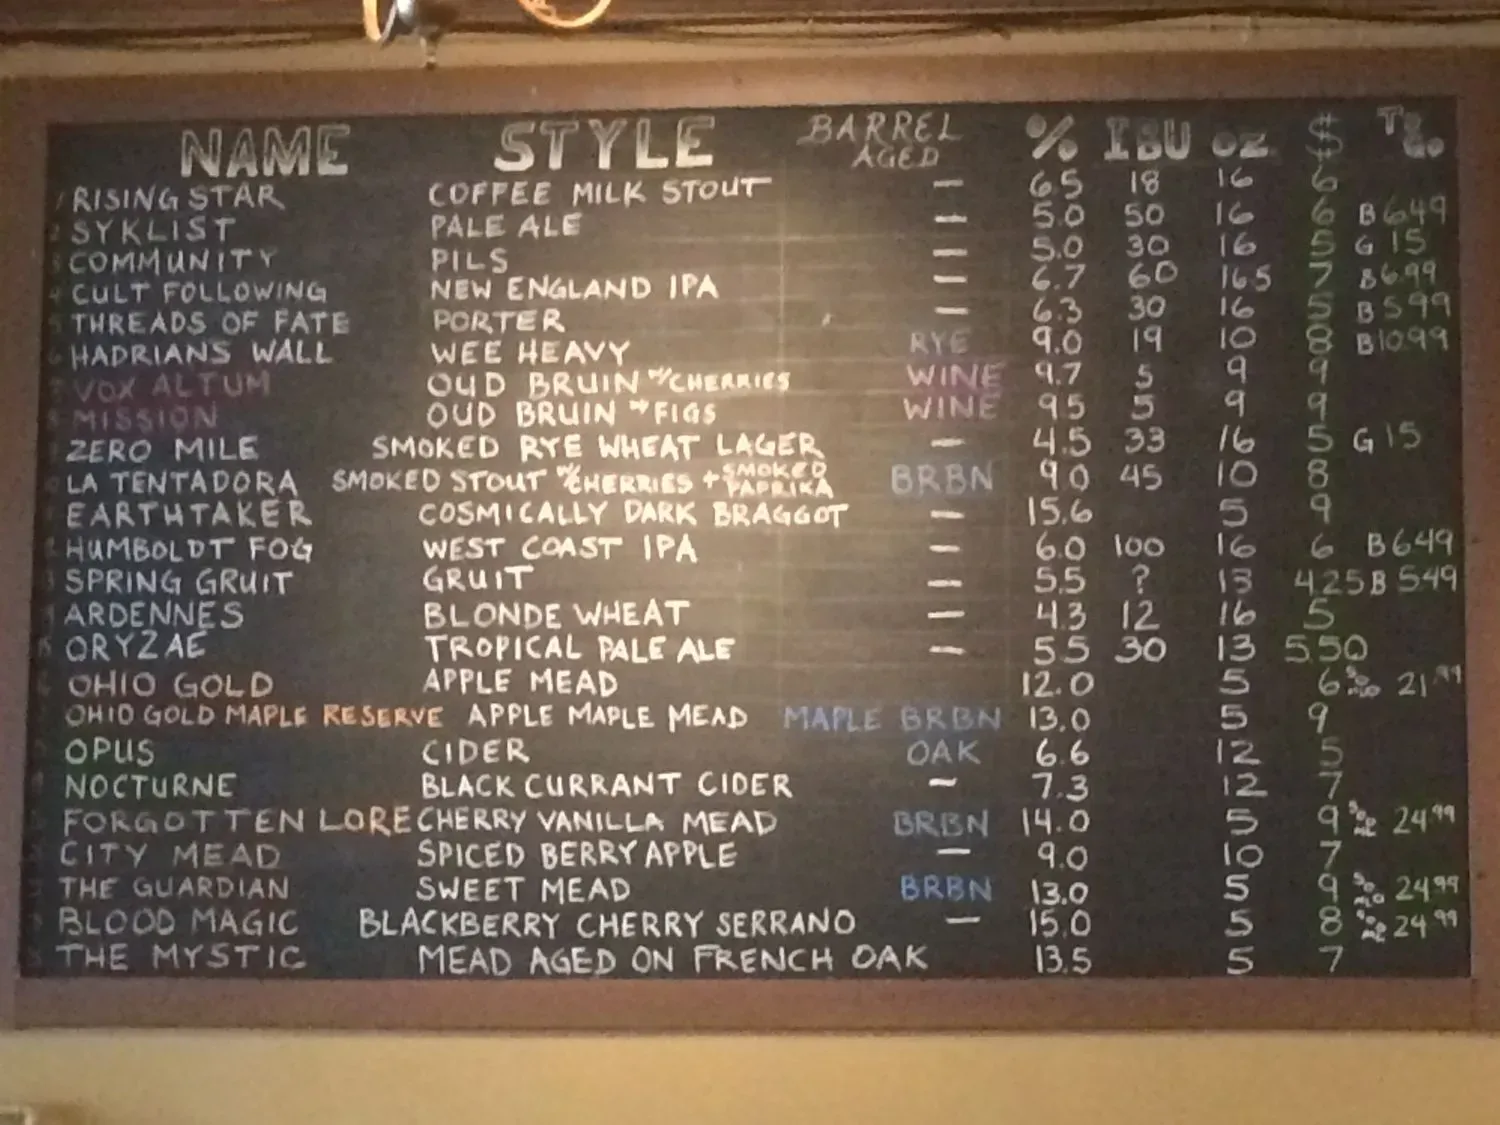 NAME STYLE BARREL AGED % IBU OZ $ TO GO
1 RISING STAR COFFEE MILK STOUT — 6.5 18 16 6
2 SYKLIST PALE ALE — 5.0 50 16 6 B 6.49
3 COMMUNITY PILS — 5.0 30 16 5 G 15
4 CULT FOLLOWING NEW ENGLAND IPA — 6.7 60 16.5 7 B 6.99
5 THREADS OF FATE PORTER — 6.3 30 16 5 B 5.99
6 HADRIANS WALL WEE HEAVY RYE 9.0 19 10 8 B 10.99
7 VOX ALTUM OUD BRUIN W/CHERRIES WINE 9.7 5 9 9
8 MISSION OUD BRUIN W/FIGS WINE 9.5 5 9 9
ZERO MILE SMOKED RYE WHEAT LAGER — 4.5 33 16 5 G 15
LA TENTADORA SMOKED STOUT W/CHERRIES + SMOKED PAPRIKA BRBN 9.0 45 10 8
EARTHTAKER COSMICALLY DARK BRAGGOT — 15.6 5 9
HUMBOLDT FOG WEST COAST IPA — 6.0 100 16 6 B 6.49
SPRING GRUIT GRUIT — 5.5 ? 13 4.25 B 5.49
ARDENNES BLONDE WHEAT — 4.3 12 16 5
ORYZAE TROPICAL PALE ALE — 5.5 30 13 5.50
OHIO GOLD APPLE MEAD 12.0 5 6 21.99
OHIO GOLD MAPLE RESERVE APPLE MAPLE MEAD MAPLE BRBN 13.0 5 9
OPUS CIDER OAK 6.6 12 5
NOCTURNE BLACK CURRANT CIDER — 7.3 12 7
FORGOTTEN LORE CHERRY VANILLA MEAD BRBN 14.0 5 9 24.99
CITY MEAD SPICED BERRY APPLE — 9.0 10 7
THE GUARDIAN SWEET MEAD BRBN 13.0 5 9 24.99
BLOOD MAGIC BLACKBERRY CHERRY SERRANO — 15.0 5 8 24.99
THE MYSTIC MEAD AGED ON FRENCH OAK 13.5 5 7